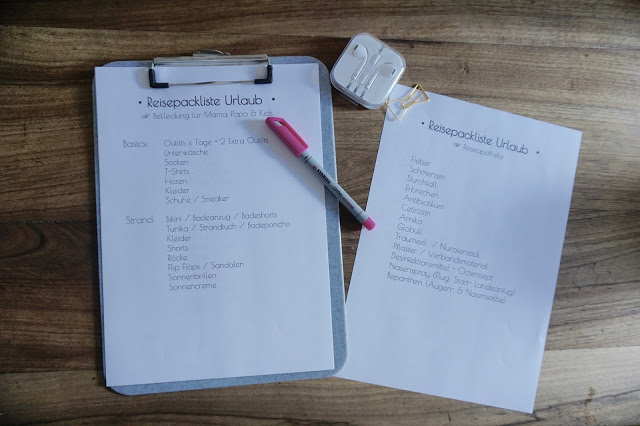 • Reisepackliste Urlaub •
Bekleidung für Mama, Papa & Kids
Basics: Outfits x Tage + 2 Extra Outfits
Unterwäsche
Socken
T-Shirts
Hosen
Kleider
Schuhe / Sneaker
Strand: Bikini / Badeanzug / Badeshorts
Tunika / Strandtuch / Badeponcho
Kleider
Shorts
Röcke
Flip Flops / Sandalen
Sonnenbrillen
Sonnencreme
• Reisepackliste Urlaub •
Reiseapotheke
Fieber
Schmerzen
Durchfall
Erbrechen
Antibiotikum
Cetirizin
Arnika
Globuli
Traumeel / Nurosensalbe
Pflaster / Verbandsmaterial
Desinfektionsmittel - Octenisept
Nasenspray (Flug, Start- Landeanflug)
Bepanthen (Augen- & Nasensalbe)